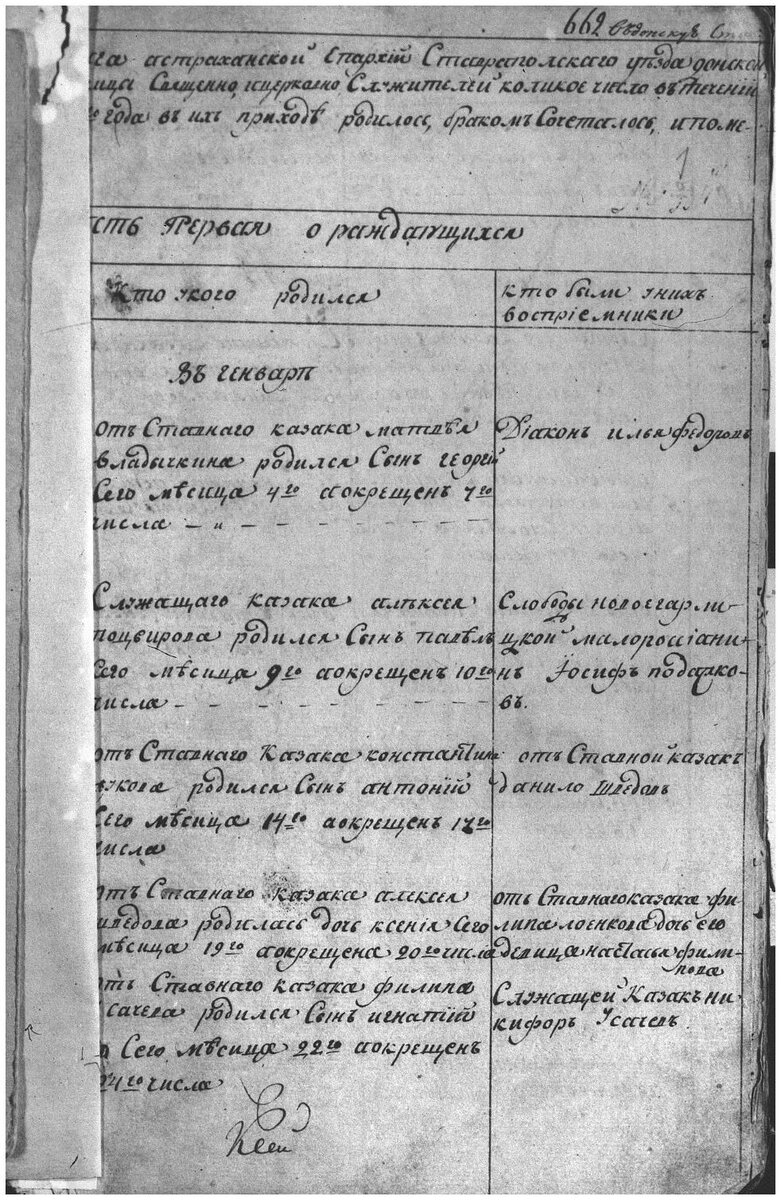 662
ага астраханской Епархїи Ставрапольскаго уѣзда донской
ницы Священно, ицерковно Служителей коликое число втечении
го года въ ихъ приходѣ родилось, бракомъ Сочеталось, ипоме-
1
сть Первая о раждающихся
Кто укого родился
кто были унихъ
воспрїемники
Въ генварѣ
отъ Ставнаго казака матвѣя
владычкина родился Сынъ георгїй
Сего мѣсяца 4го аокрещенъ 7го
числа
Дїаконъ илья федоровъ
Служащаго казака алѣксея
поцвирова родился Сынъ павелъ
Сего мѣсяца 9го аокрещенъ 10го
числа
Слободы новоегарлы-
цкой малороссїани-
нъ Іосифъ подарко-
въ.
отъ Ставнаго Казака константина
кова родился Сынъ антонїй
Сего мѣсяца 14го аокрещенъ 17го
числа
отъ Ставной казакъ
данило Шведовъ
отъ Ставнаго Казака алексея
шведова родилась дочь ксенїя Сего
мѣсяца 19го аокрещена 20го числа
отъ Ставнаго казака фи-
липа лоенкова дочь его
девица настасья филип-
пова
отъ Ставнаго казака филипа
усачева родился Сынъ игнатїй
Сего мѣсяца 22го аокрещенъ
24го числа
Служащей Казакъ ни-
кифоръ Усачевъ